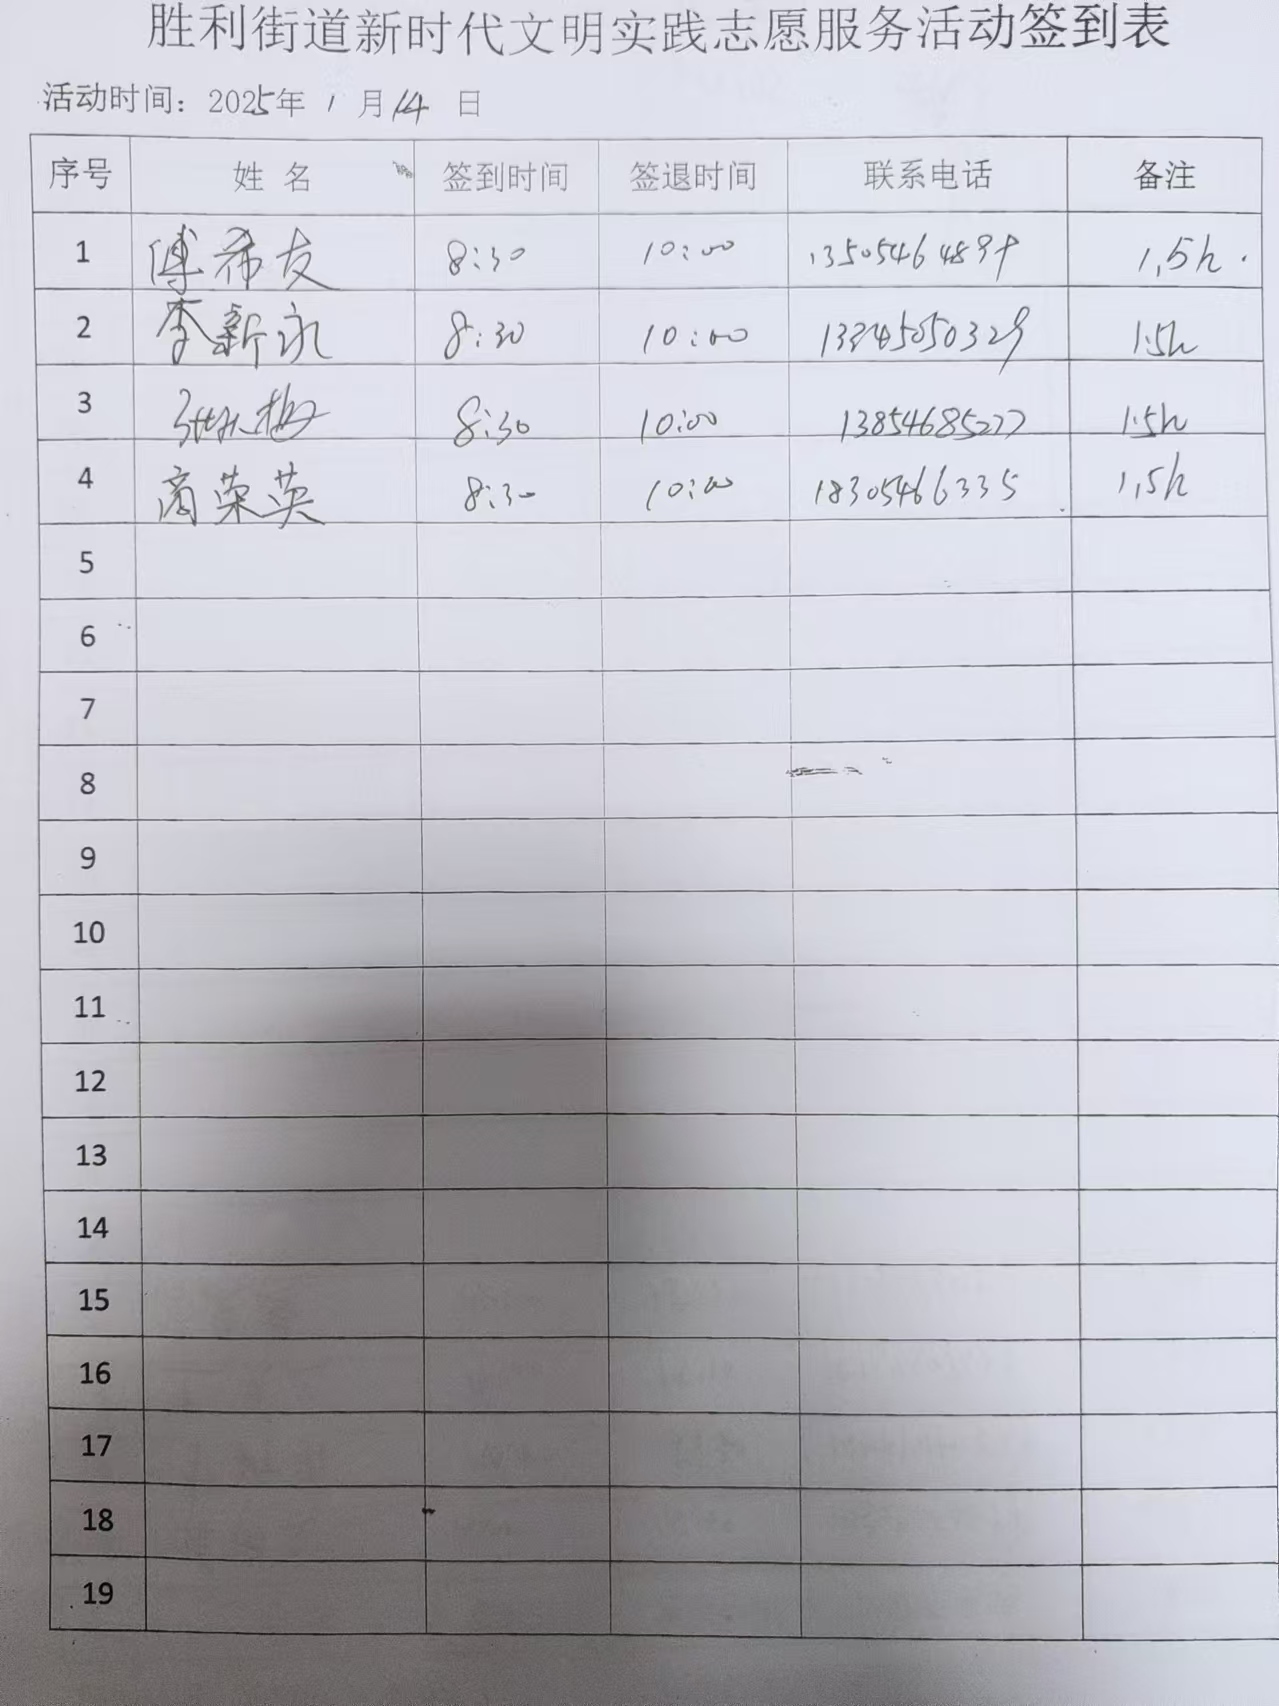 胜利街道新时代文明实践志愿服务活动签到表
活动时间：2025年 1 月 14 日
序号 姓 名 签到时间 签退时间 联系电话 备注
1 傅希友 8:30 10:00 1,5h.
2 李新永 8:30 10:00 1.5h
3 8:30 10:00 13854685277 1.5h
4 商荣英 8:30 10:00 18305466335 1,5h
5
6
7
8
9
10
11
12
13
14
15
16
17
18
19